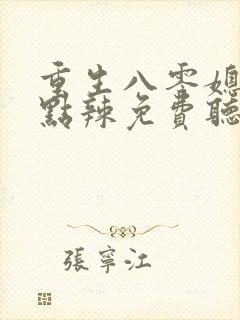 重生八零媳
點辣免費聽
張寧江